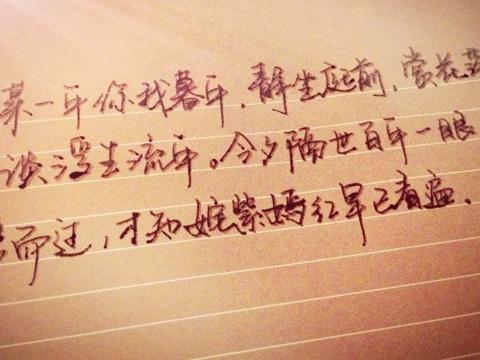 某一年你我暮年，静坐庭前，赏花落
谈浮生流年。今夕隔世百年一眼
而过，才知姹紫嫣红早已看遍．